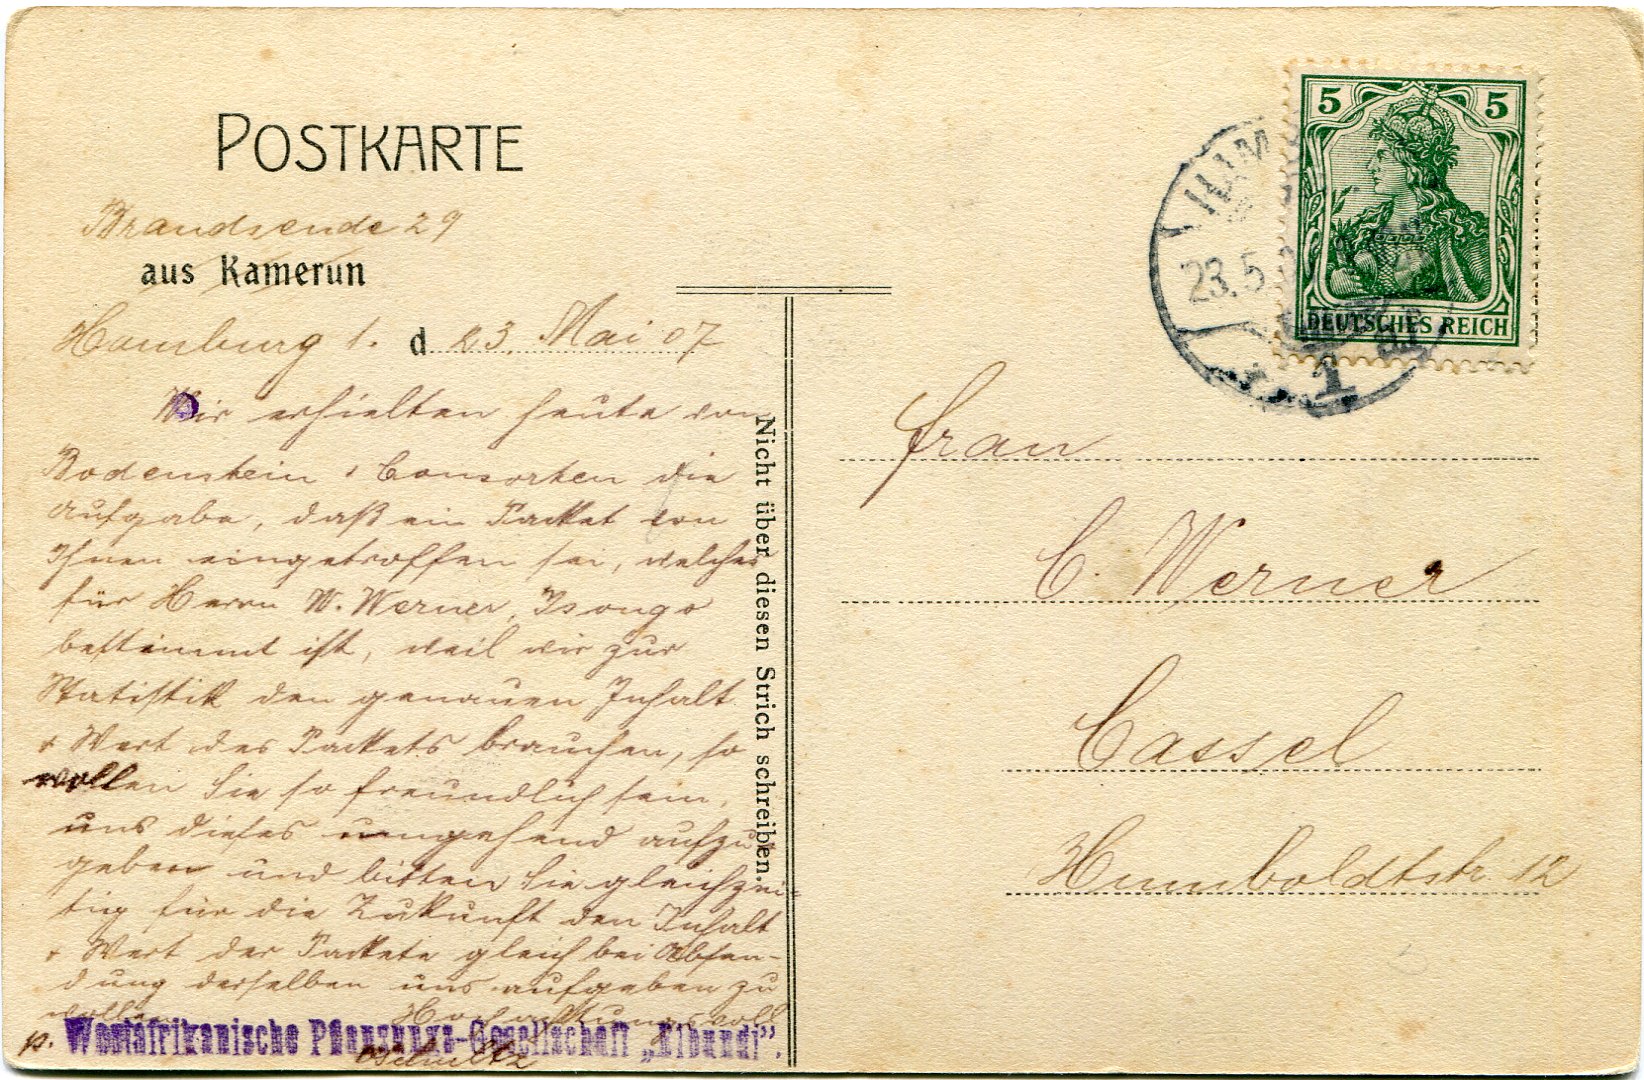 POSTKARTE
Brandsende 29
aus Kamerun
Hamburg 1. d 23. Mai 07
Wir erhielten heute von
Bodenstein & Consorten die
Aufgabe, daß ein Packet von
Ihnen eingetroffen sei, welches
für Herrn W. Werner, Isongo
bestimmt ist, weil wir zur
Statistik den genauen Inhalt
& Wert des Packets brauchen, so
wollen Sie so freundlich sein,
uns dieses umgehend aufzu
geben und bitten Sie gleichzei=
tig für die Zukunft den Inhalt
& Wert der Packete gleich bei Absen-
dung derselben uns aufgeben zu
wollen. Hochachtungsvoll
p. Westafrikanische Pflanzungs-Gesellschaft „Bibundi".
Schultz
Nicht über diesen Strich schreiben.
5 5
DEUTSCHES REICH
HAMB
23.5
1
Frau
C. Werner
Cassel
Humboldtstr 12